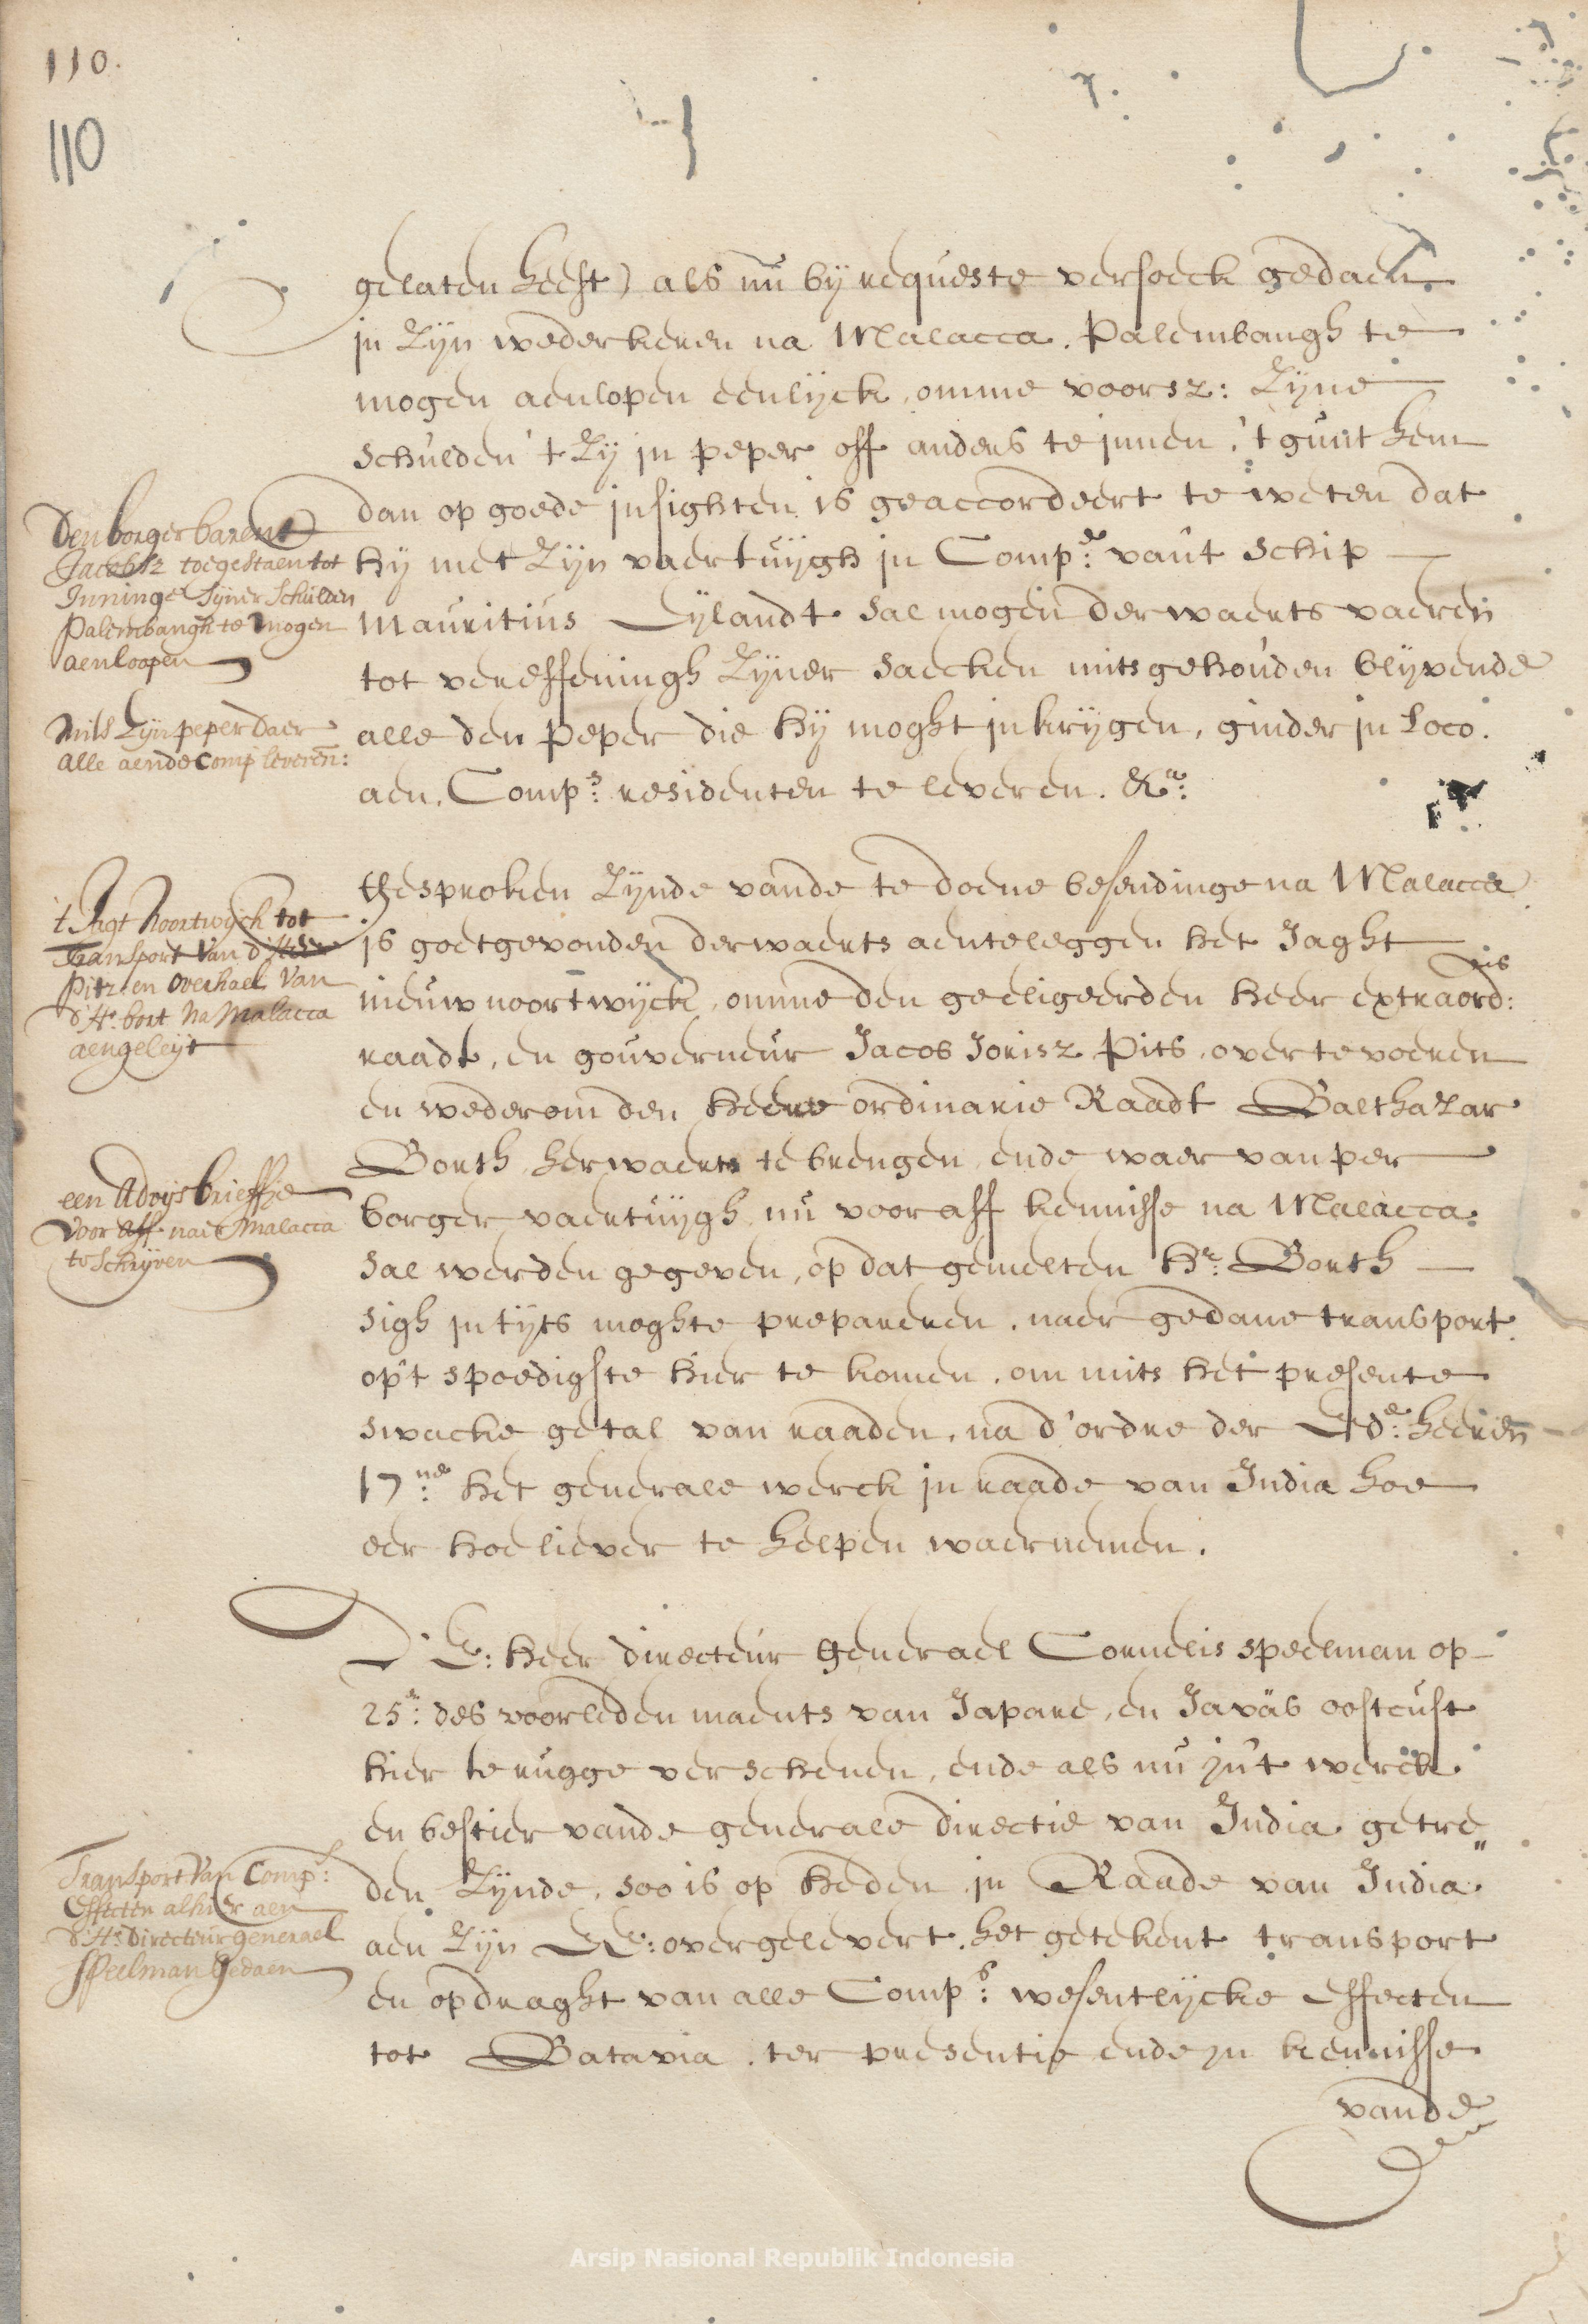 110.
110
gelaten heeft) als nu bij requeste versoeck gedaen
in zijn wederkeren na Malacca. Palembangh te
mogen aenlopen eenlijck, omme voorsz: zijne
schulden 't zij in peper off anders te innen, 't gunt hem
dan op goede insighten is geaccordeert te weten dat
hij met zijn vaertuijgh in Comp:e van't schip
Mauritius Eijlandt sal mogen derwaerts vaeren
tot vereffeningh zijner saecken mits gehouden blijvende
alle den peper die hij moght inkrijgen, ginder in loco.
aen Comp:s residenten te leveren. &a:
Den borger barent
Jacobsz toegestaen tot
Inninge sijner Schulden
Palembangh te mogen
aenloopen
Mits zijn peper daer
alle aen de Comp leveren:
Gesproken zijnde vande te doene besendinge na Malacca
is goetgevonden derwaerts aenteleggen het Jaght
nieuw noortwijck, omme den geeligeerden heer extraord:ris
raadt, en gouverneur Jacob Jorisz Pits, over te voeren
en wederom den heere ordinarie Raadt Balthazar
Borth herwaerts te brengen, ende waer van per
borger vaertuijgh nu vooraff kennisse na Malacca
sal werden gegeven, op dat gemelten Hr: Borth
sigh in tijts moghte prepareren, naer gedane transport
op't spoedighste hier te komen, om mits het presente
swacke getal van raaden, na d'ordre der Ed:e heeren
17:ne het generale werck in raade van India hoe
eer hoe liever te helpen waernemen.
't Jagt Noortwijck tot
Transport van d'Heer
Pitz en overhael van
d'Hr. bort Na Malacca
aengeleijt
een Advijs brieffje
voor aff naer Malacca
te Schrijven
D'E: heer directeur generael Cornelis speelman op
25:e des voorleden maents van Japare, en Javas oostcust
hier te rugge verschenen, ende als nu in't werck
en bestier vande generale directie van India getre"
den zijnde, soo is op heden in Raade van India
aen zijn E: overgelevert, het getekent transport
en opdraght van alle Comp:s wesentlijcke effecten
tot Batavia. ter presentie ende in kennisse
vande
Transport van Comp:s
Effecten alhier aen
d'Hr. directeur generael
Speelman gedaen
Arsip Nasional Republik Indonesia